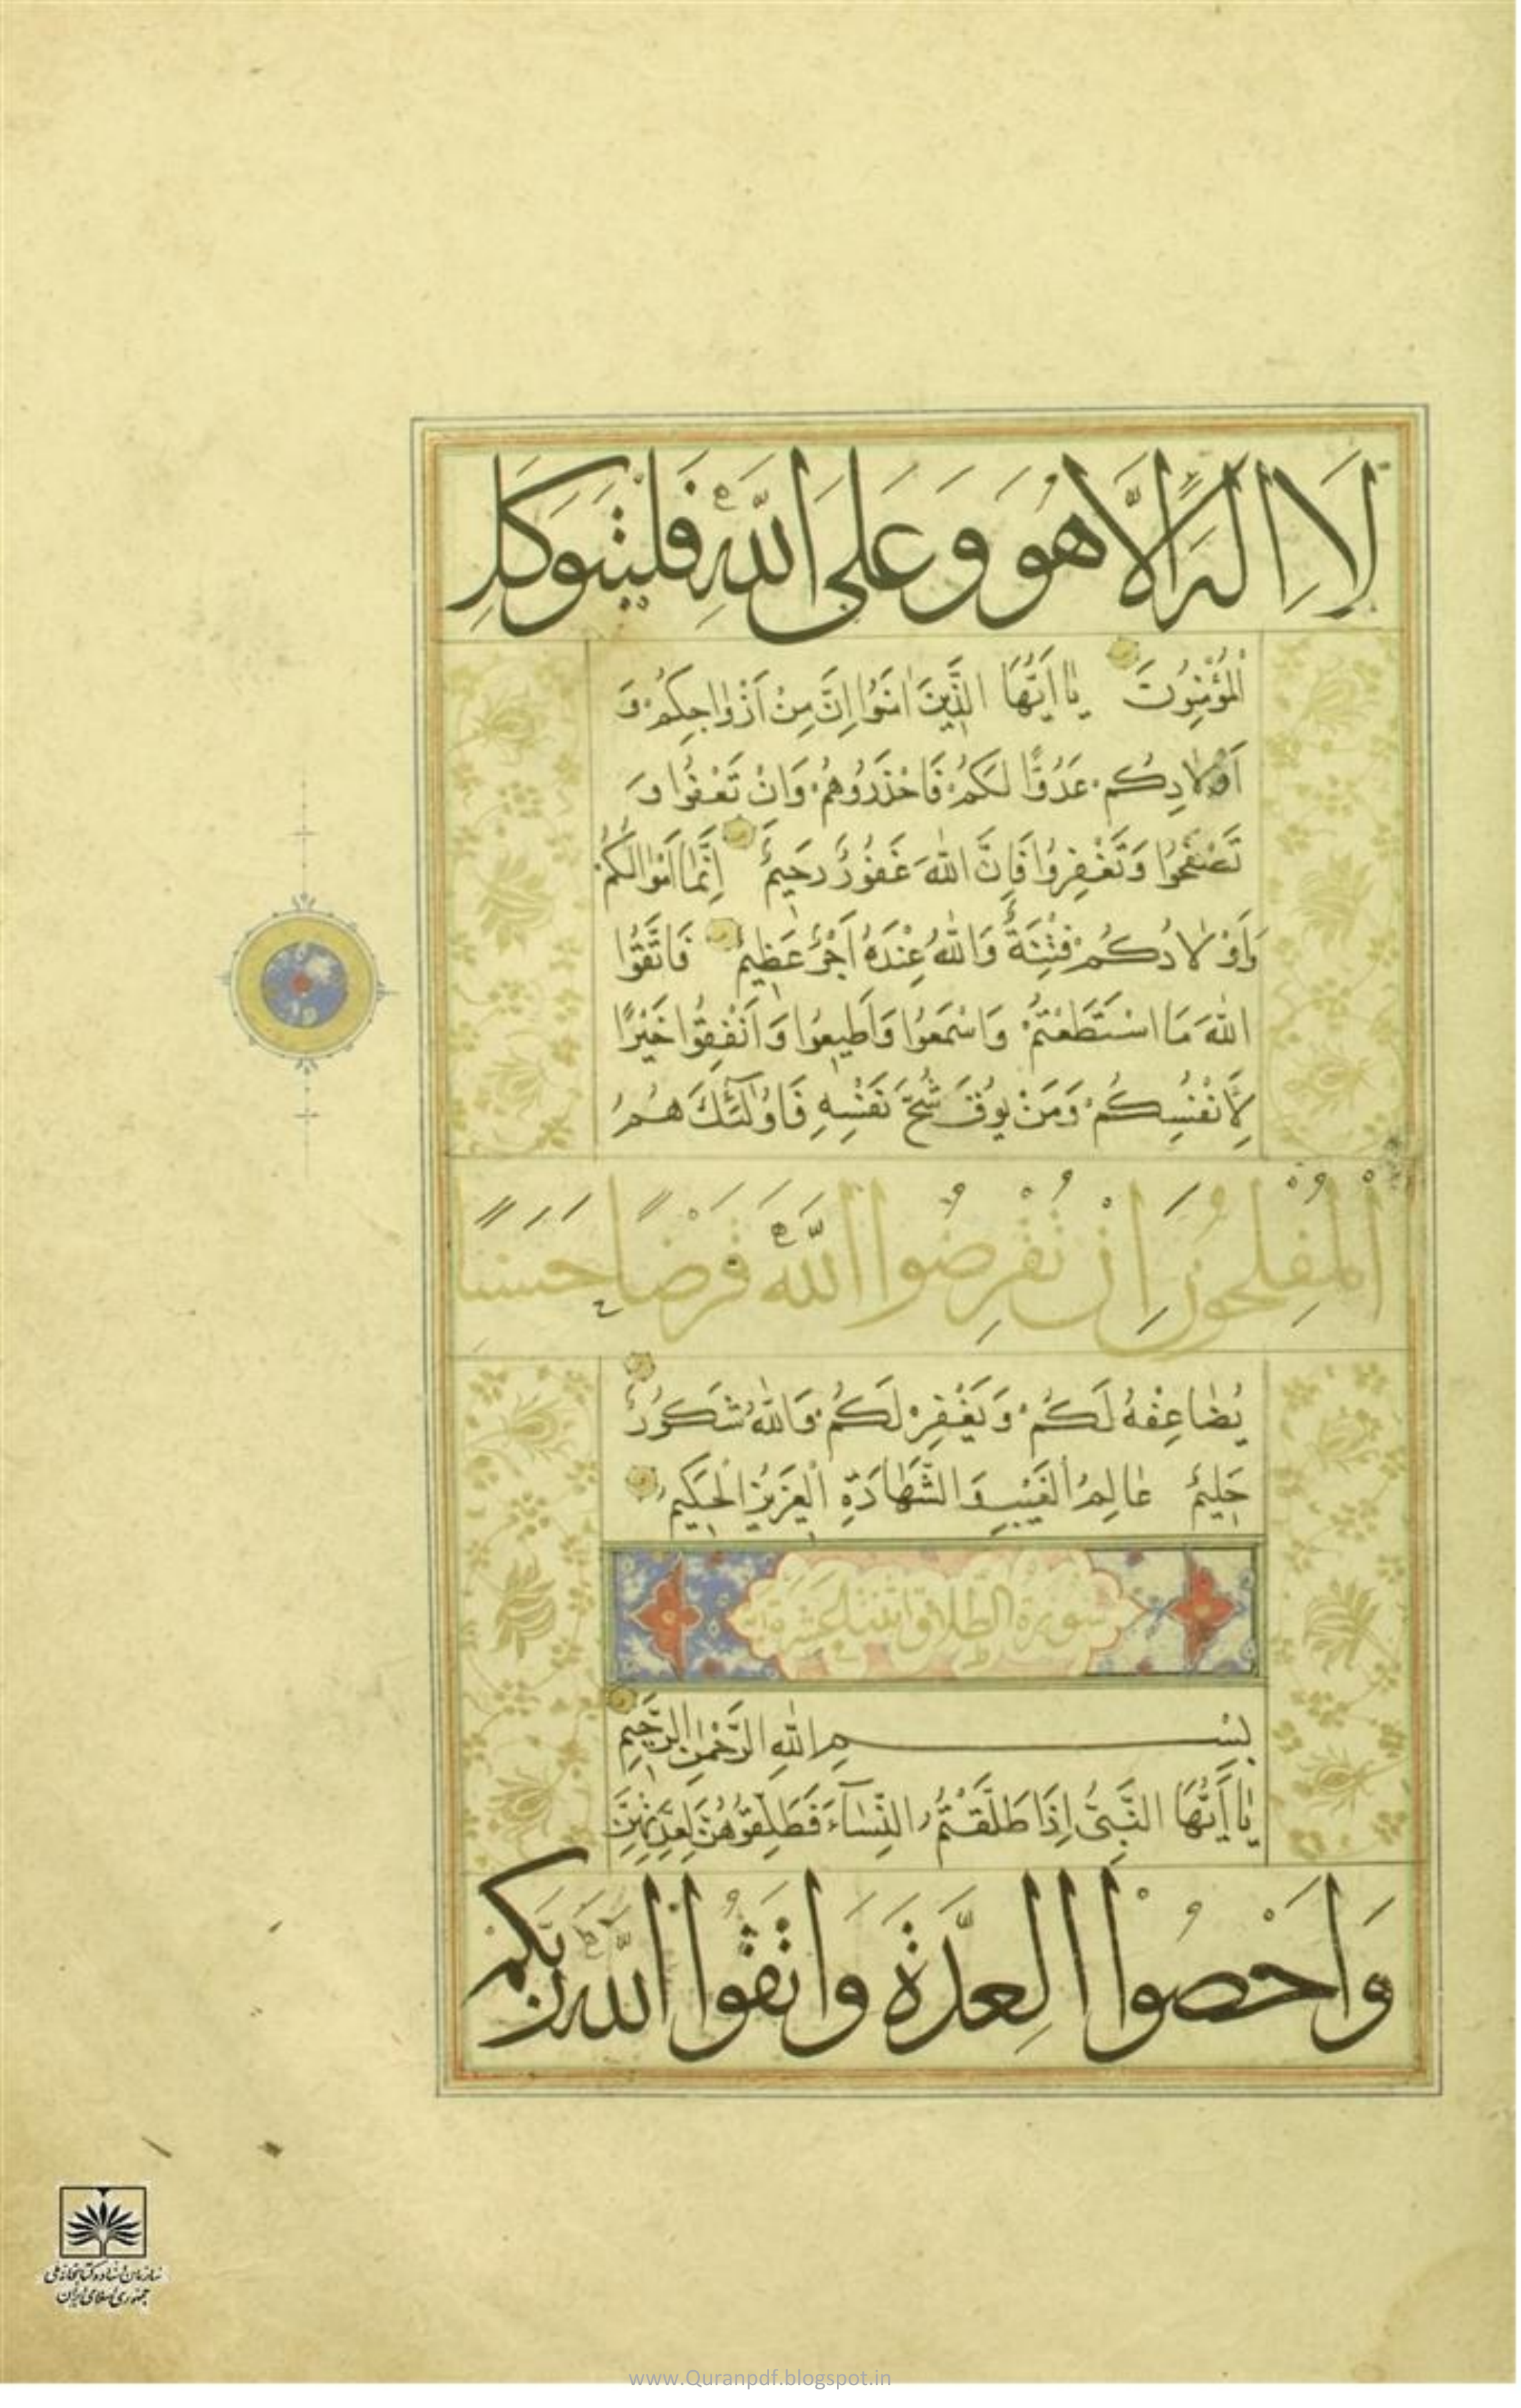 لَا اِلٰهَ اِلَّا هُوَ وَعَلَى اللّٰهِ فَلْيَتَوَكَّلِ
الْمُؤْمِنُونَ يٰا اَيُّهَا الَّذِينَ اٰمَنُوا اِنَّ مِنْ اَزْوٰاجِكُمْ وَ
اَوْلٰادِكُمْ عَدُوًّا لَكُمْ فَاحْذَرُوهُمْ وَاِنْ تَعْفُوا وَ
تَصْفَحُوا وَتَغْفِرُوا فَاِنَّ اللّٰهَ غَفُورٌ رَحِيمٌ اِنَّمٰا اَمْوٰالُكُمْ
وَاَوْلٰادُكُمْ فِتْنَةٌ وَاللّٰهُ عِنْدَهُ اَجْرٌ عَظِيمٌ فَاتَّقُوا
اللّٰهَ مَا اسْتَطَعْتُمْ وَاسْمَعُوا وَاَطِيعُوا وَاَنْفِقُوا خَيْرًا
لِاَنْفُسِكُمْ وَمَنْ يُوقَ شُحَّ نَفْسِهِ فَاُولٰئِكَ هُمُ
الْمُفْلِحُونَ اِنْ تُقْرِضُوا اللّٰهَ قَرْضًا حَسَنًا
يُضٰاعِفْهُ لَكُمْ وَيَغْفِرْ لَكُمْ وَاللّٰهُ شَكُورٌ
حَلِيمٌ عٰالِمُ الْغَيْبِ وَالشَّهٰادَةِ الْعَزِيزُ الْحَكِيمُ
سورة الطلاق اثنتا عشرة اية
بِسْمِ اللّٰهِ الرَّحْمٰنِ الرَّحِيمِ
يٰا اَيُّهَا النَّبِىُّ اِذَا طَلَّقْتُمُ النِّسٰآءَ فَطَلِّقُوهُنَّ لِعِدَّتِهِنَّ
وَاَحْصُوا الْعِدَّةَ وَاتَّقُوا اللّٰهَ رَبَّكُمْ
سازمان اسناد و کتابخانه ملی
جمهوری اسلامی ایران
www.Quranpdf.blogspot.in